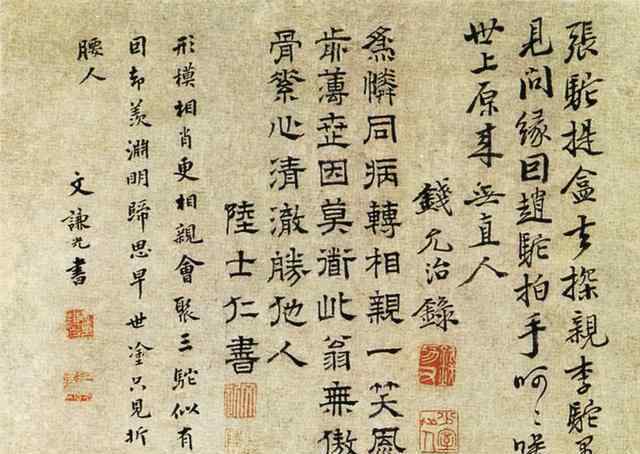 張駝提盒去探親李駝遇
見問緣因趙駝拍手呵〻
世上原來無直人
錢允治錄
為憐同病轉相親一笑風
前薄世因莫道此翁無傲
骨素心清澈勝他人
陸士仁書
形模相肖更相親會聚三駝似有
因却羨淵明歸思早世塗只見折
腰人
文謙光書